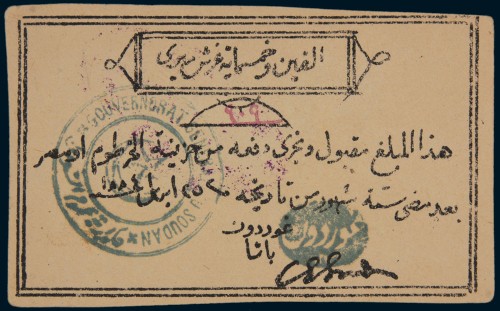 الفين وخمسماية غرش ميرى
هذا المبلغ مقبول وتجرى دفعه من خزينة الخرطوم او مصر
بعد مضى ستة شهور من تاريخه ٢٥ ابريل ١٨٨٤
غوردون
باشا
GOUVERNORAT SOUDAN